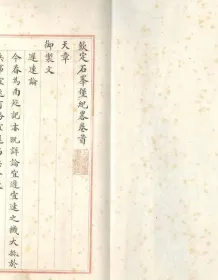 欽定石峯堡紀畧卷首
天章
御製文
遲速論
今春為南廵記亦既詳論宜遲宜速之機大扺於